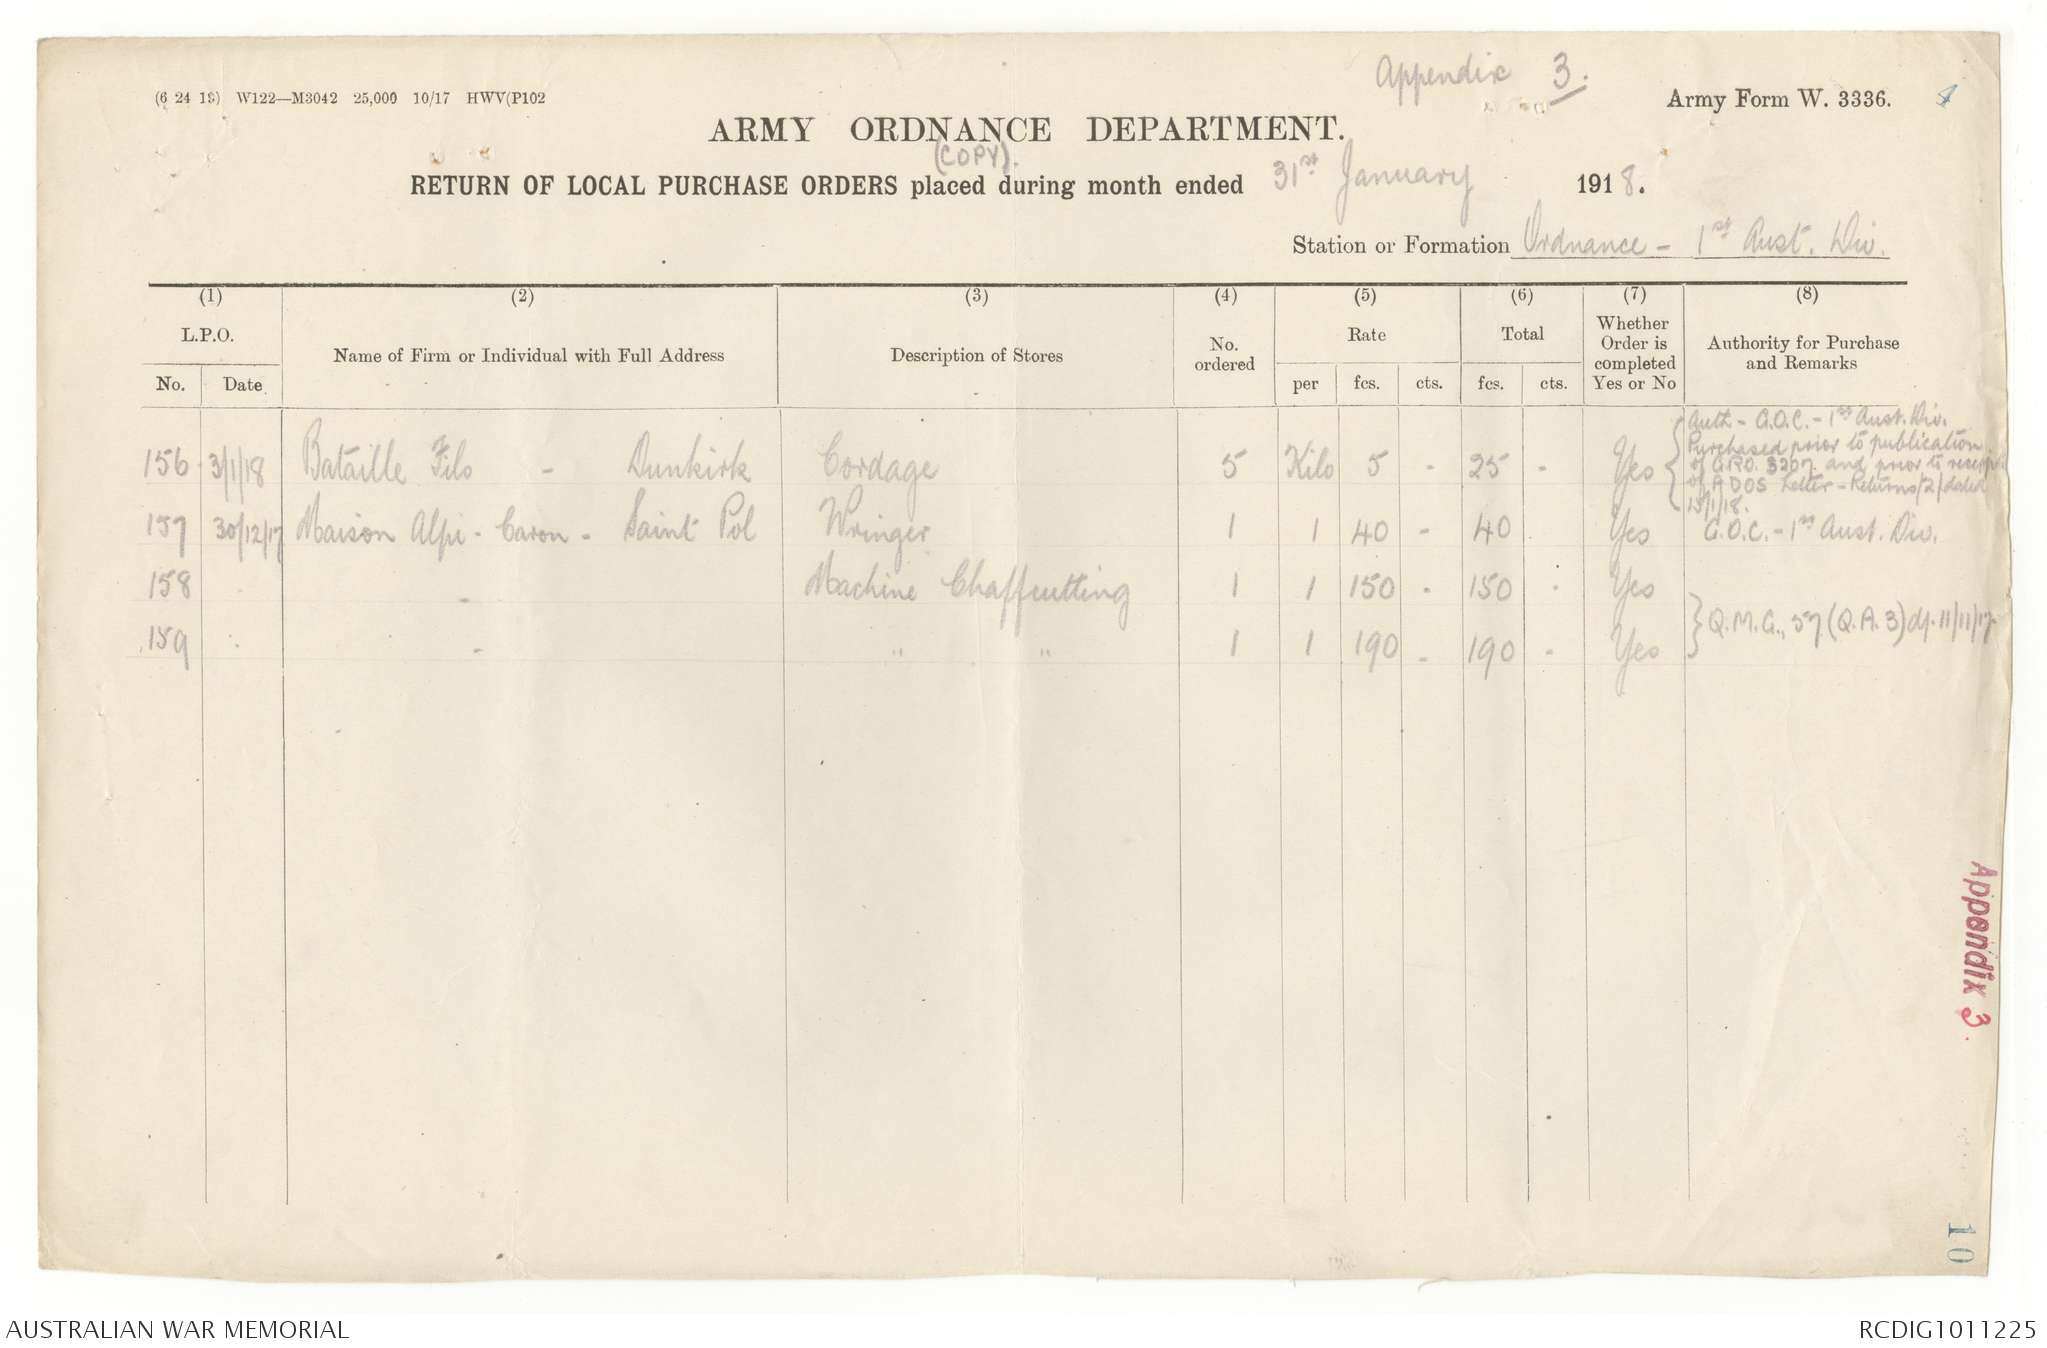 Appendix 3.
(6 24 18) W122—M3042 25,000 10/17 HWV(P102
Army Form W. 3336.
ARMY ORDNANCE DEPARTMENT.
(COPY).
RETURN OF LOCAL PURCHASE ORDERS placed during month ended 31st January 1918.
Station or Formation Ordnance - 1st Aust. Div.
(1) (2) (3) (4) (5) (6) (7) (8)
L.P.O. Name of Firm or Individual with Full Address Description of Stores No. ordered Rate Total Whether Order is completed Yes or No Authority for Purchase and Remarks
No. Date per fcs. cts. fcs. cts.
156 3/1/18 Bataille Fils - Dunkirk Cordage 5 Kilo 5 - 25 - Yes
Auth - G.O.C. - 1st Aust. Div.
Purchased prior to publication
of G.R.O. 3207. and prior to receipt
of ADOS Letter - Returns/2/dated
15/1/18.
157 30/12/17 Maison Alpi - Caron - Saint Pol Wringer 1 1 40 - 40 Yes G.O.C. - 1st Aust. Div.
158 " - Machine Chaffcutting 1 1 150 - 150 - Yes
} Q.M.G., 57 (Q.A.3) d/. 11/11/17.
159 " - " " 1 1 190 - 190 - Yes
Appendix 3.
10
AUSTRALIAN WAR MEMORIAL
RCDIG1011225